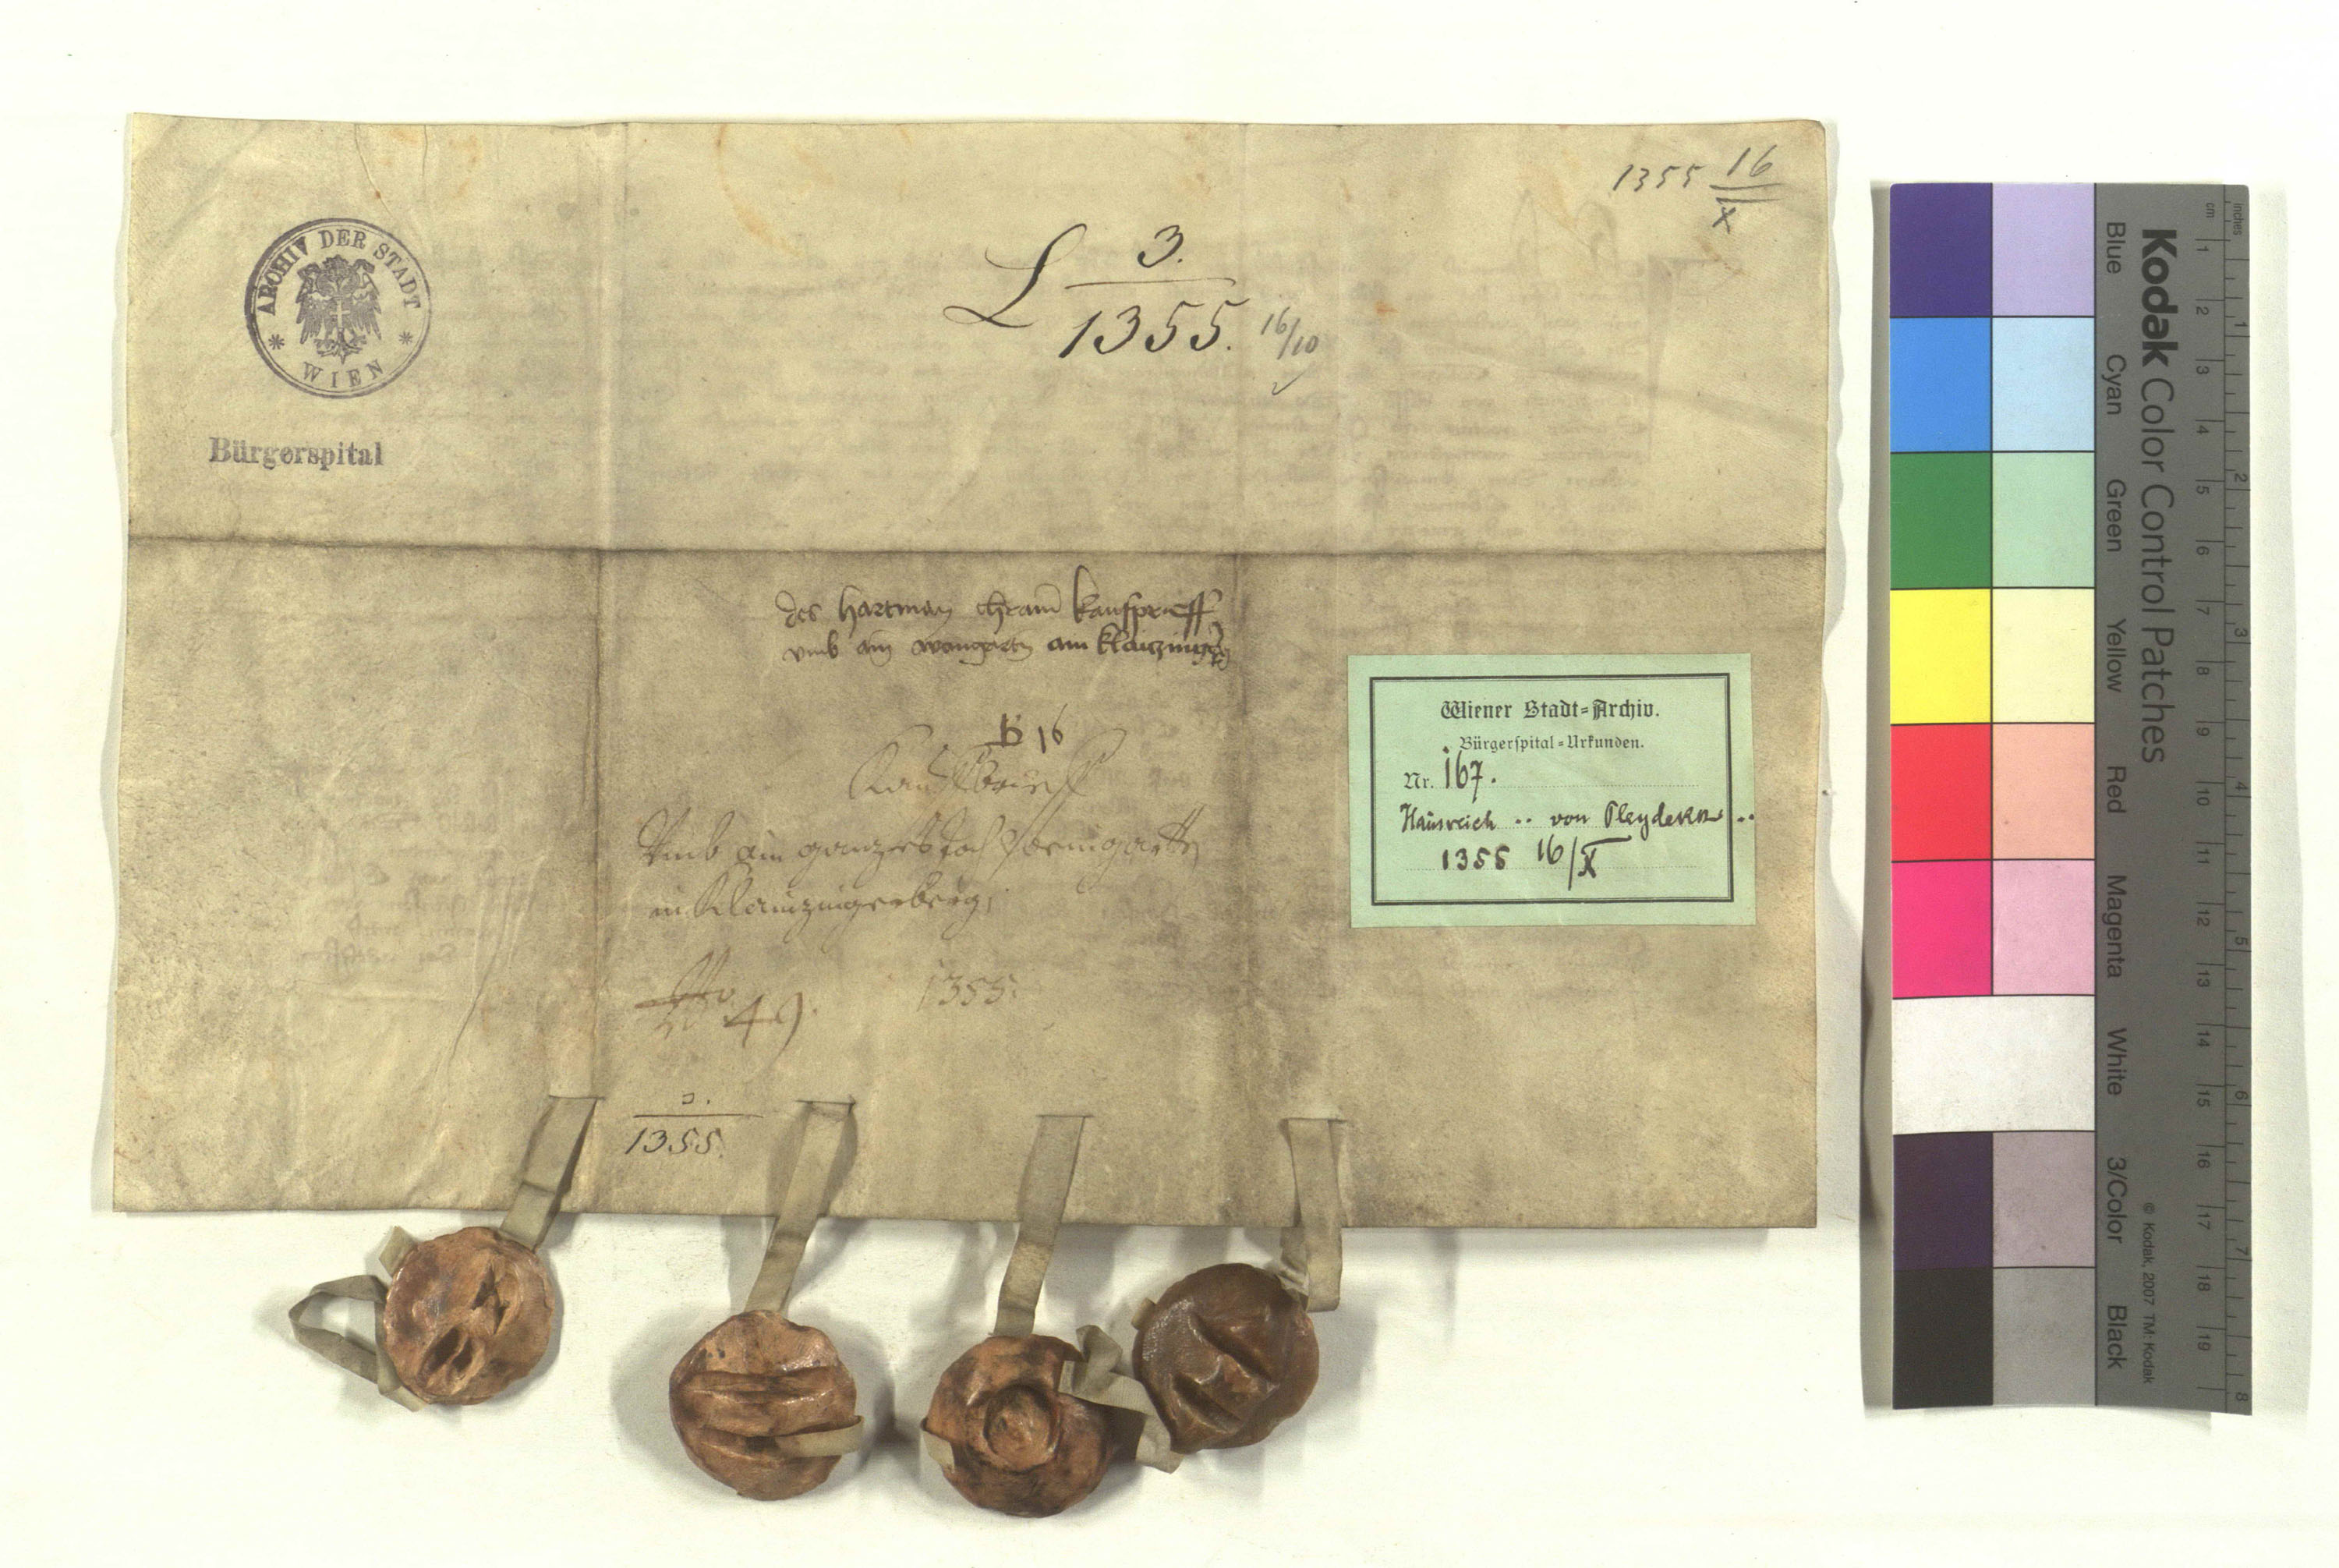 1355 16/X
ARCHIV DER STADT
* WIEN *
L 3./1355. 16/10
Bürgerspital
des hartman chram kaufprieff
vmb ain weingartn am klaiczing
B 16
Kauffbrieff
Vmb ain ganzes Joch Weingartten
in Klainzingerberg
No 49. 1355.
1355.
Wiener Stadt=Archiv.
Bürgerspital=Urkunden.
Nr. 167.
Hausreich .. von Pleydekn ..
1355 16/X
Kodak Color Control Patches
Blue Cyan Green Yellow Red Magenta White 3/Color Black
© Kodak, 2007 TM: Kodak
cm 1 2 3 4 5 6 7 8 9 10 11 12 13 14 15 16 17 18 19
inches 1 2 3 4 5 6 7 8